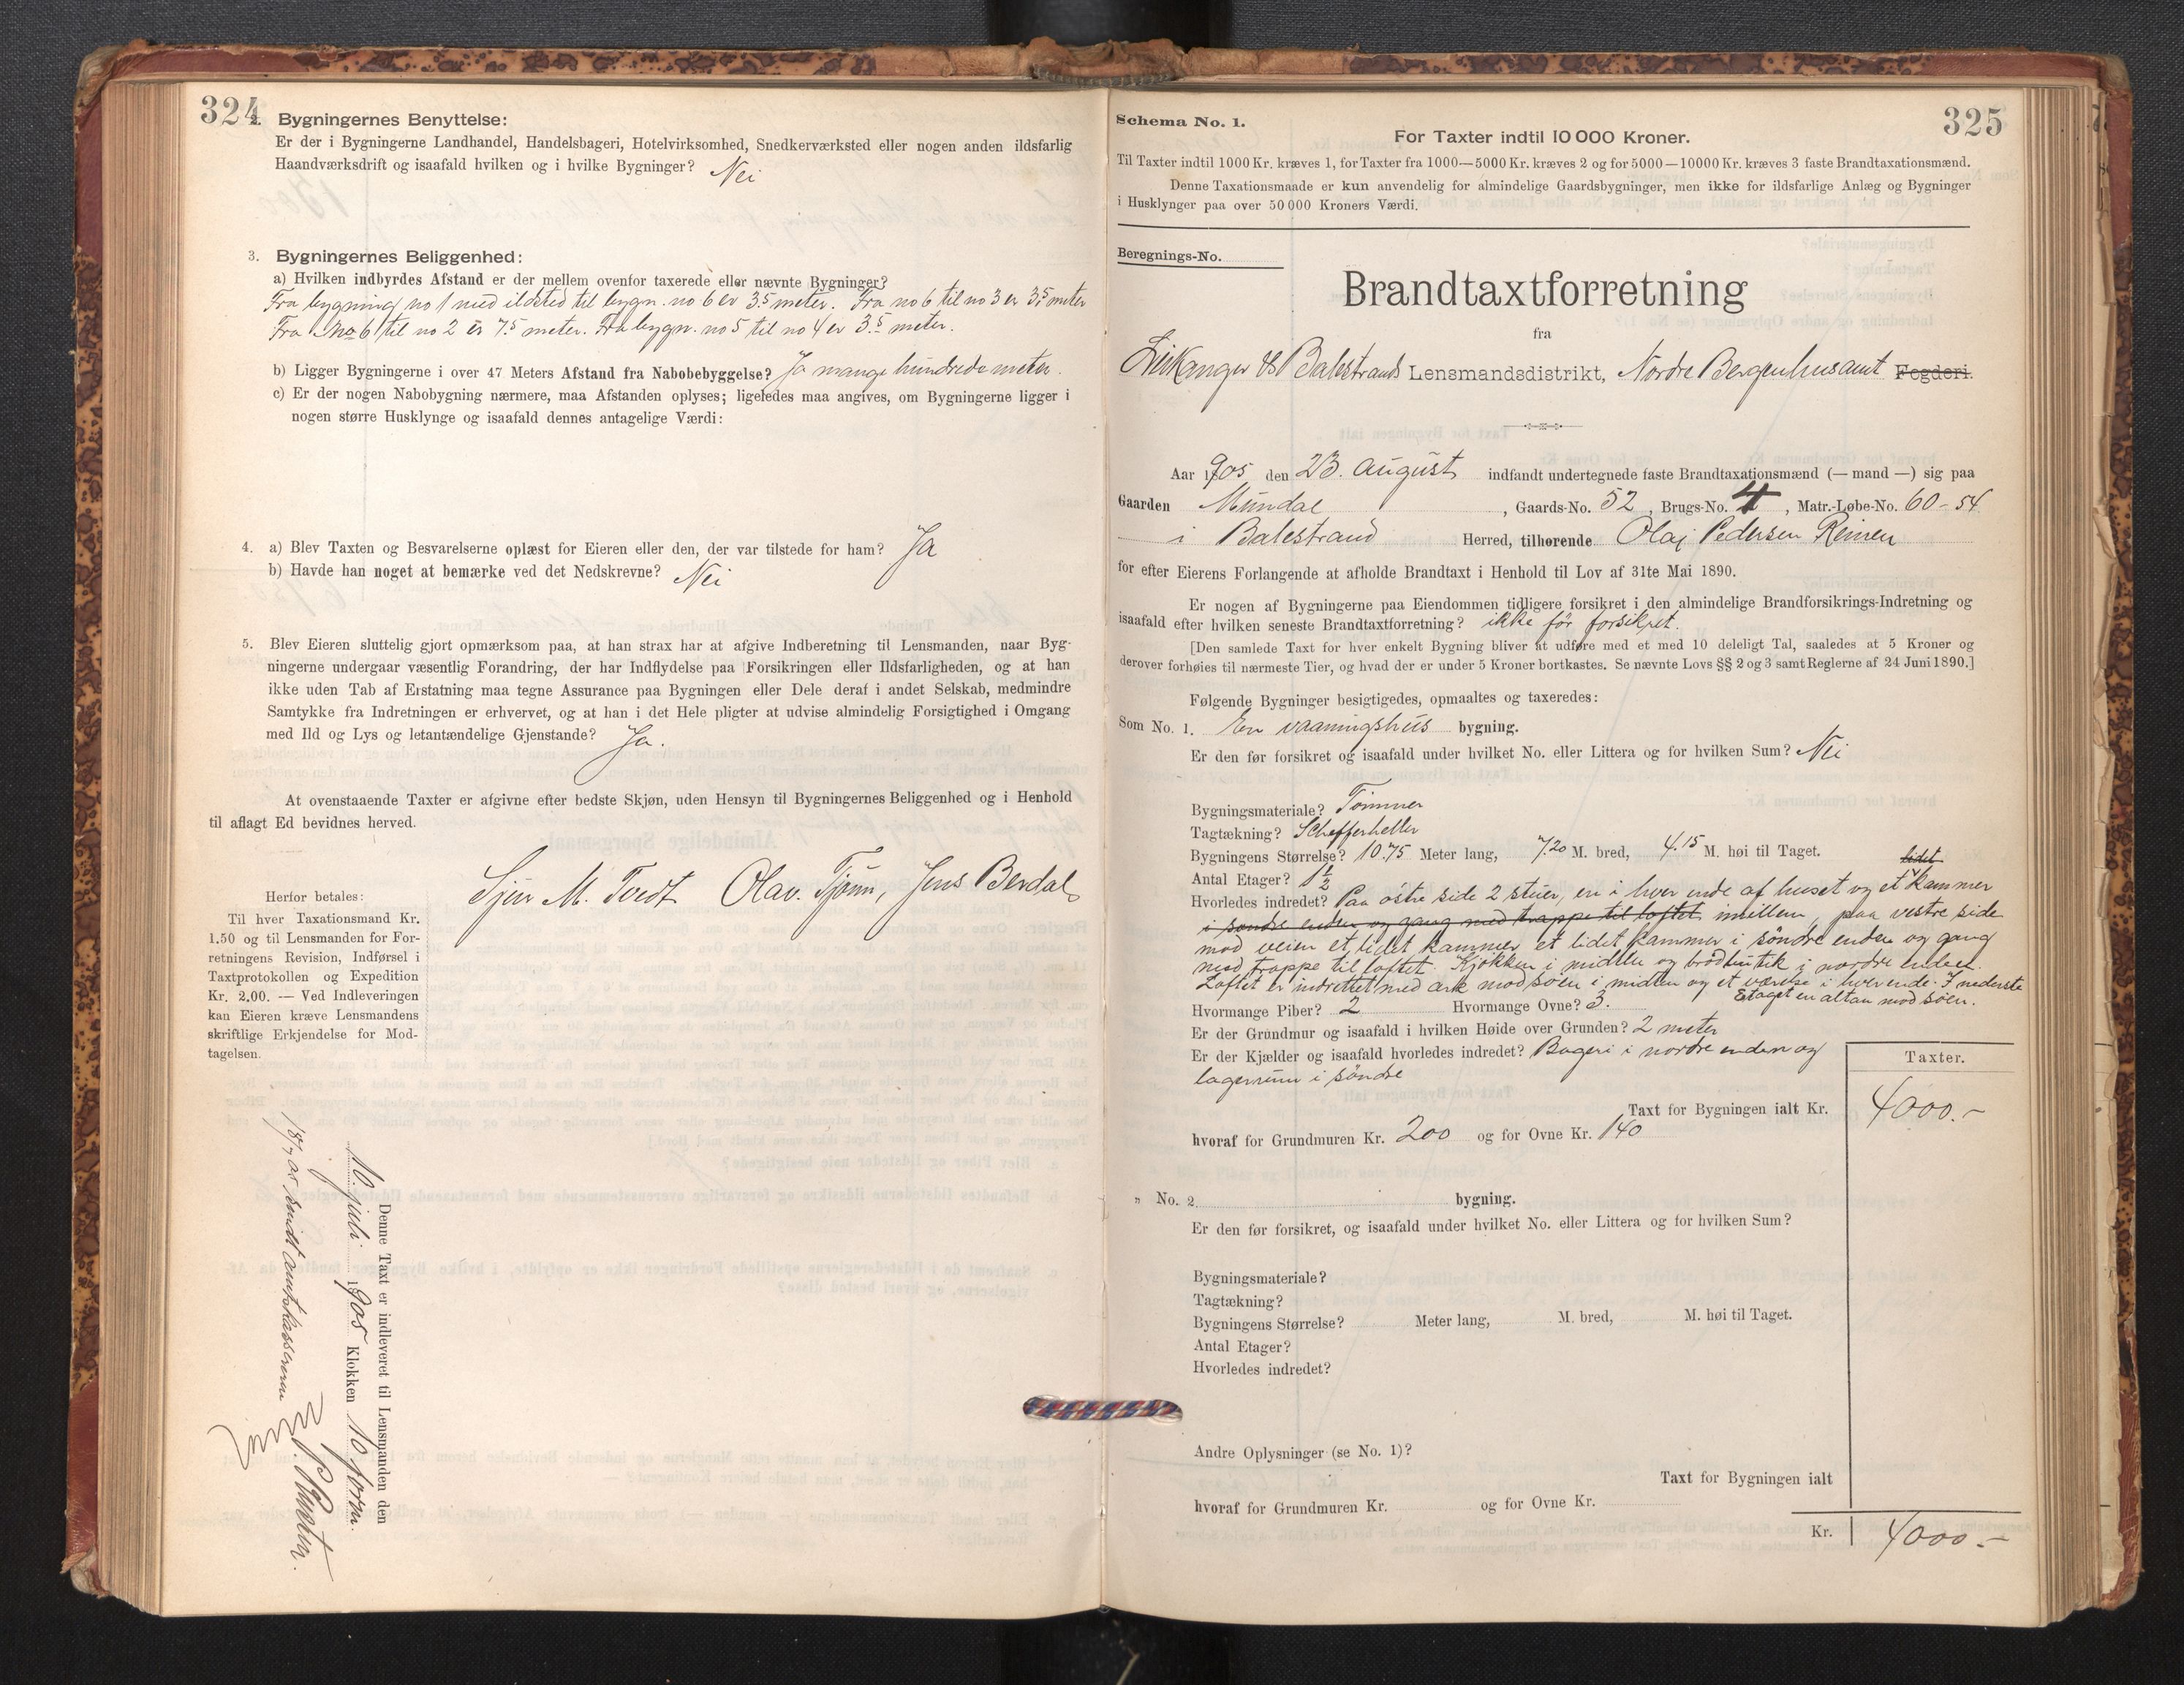 324
2. Bygningernes Benyttelse:
Er der i Bygningerne Landhandel, Handelsbageri, Hotelvirksomhed, Snedkerværksted eller nogen anden ildsfarlig
Haandværksdrift og isaafald hvilken og i hvilke Bygninger? Nei
3. Bygningernes Beliggenhed:
a) Hvilken indbyrdes Afstand er der mellem ovenfor taxerede eller nævnte Bygninger?
Fra bygning no 1 med ildsted til bygn. no 6 er 3.5 meter. Fra no 6 til no 3 er 3.5 meter
Fra no 6 til no 2 er 7.5 meter. Fra bygn. no 5 til no 4 er 3.5 meter.
b) Ligger Bygningerne i over 47 Meters Afstand fra Nabobebyggelse? Ja mange hundrede meter.
c) Er der nogen Nabobygning nærmere, maa Afstanden oplyses; ligeledes maa angives, om Bygningerne ligger i
nogen større Husklynge og isaafald dennes antagelige Værdi:
4. a) Blev Taxten og Besvarelserne oplæst for Eieren eller den, der var tilstede for ham? Ja
b) Havde han noget at bemærke ved det Nedskrevne? Nei
5. Blev Eieren sluttelig gjort opmærksom paa, at han strax har at afgive Indberetning til Lensmanden, naar Byg-
ningerne undergaar væsentlig Forandring, der har Indflydelse paa Forsikringen eller Ildsfarligheden, og at han
ikke uden Tab af Erstatning maa tegne Assurance paa Bygningen eller Dele deraf i andet Selskab, medmindre
Samtykke fra Indretningen er erhvervet, og at han i det Hele pligter at udvise almindelig Forsigtighed i Omgang
med Ild og Lys og letantændelige Gjenstande? Ja.
At ovenstaaende Taxter er afgivne efter bedste Skjøn, uden Hensyn til Bygningernes Beliggenhed og i Henhold
til aflagt Ed bevidnes herved.
Sjur M. Tvedt Olav. Tjønn, Jens Berdal
Herfor betales:
Til hver Taxationsmand Kr.
1.50 og til Lensmanden for For-
retningens Revision, Indførsel i
Taxtprotokollen og Expedition
Kr. 2.00. — Ved Indleveringen
kan Eieren kræve Lensmandens
skriftlige Erkjendelse for Mod-
tagelsen.
Denne Taxt er indleveret til Lensmanden den
10 juli 1905 Klokken 10 form.
18/7 05 sendt amtskasseren
325
Schema No. 1.
For Taxter indtil 10 000 Kroner.
Til Taxter indtil 1000 Kr. kræves 1, for Taxter fra 1000—5000 Kr. kræves 2 og for 5000—10000 Kr. kræves 3 faste Brandtaxationsmænd.
Denne Taxationsmaade er kun anvendelig for almindelige Gaardsbygninger, men ikke for ildsfarlige Anlæg og Bygninger
i Husklynger paa over 50 000 Kroners Værdi.
Beregnings-No.
Brandtaxtforretning
fra
Leikanger & Balestrands Lensmandsdistrikt, Nordre Bergenhusamt Fogderi.
Aar 1905 den 23. August indfandt undertegnede faste Brandtaxationsmænd (— mand —) sig paa
Gaarden Mundal, Gaards-No. 52, Brugs-No. 4, Matr.-Løbe-No. 60-54
i Balestrand Herred, tilhørende Olaj Pedersen Reinen
for efter Eierens Forlangende at afholde Brandtaxt i Henhold til Lov af 31te Mai 1890.
Er nogen af Bygningerne paa Eiendommen tidligere forsikret i den almindelige Brandforsikrings-Indretning og
isaafald efter hvilken seneste Brandtaxtforretning? ikke før forsikret.
[Den samlede Taxt for hver enkelt Bygning bliver at udføre med et med 10 deleligt Tal, saaledes at 5 Kroner og
derover forhøies til nærmeste Tier, og hvad der er under 5 Kroner bortkastes. Se nævnte Lovs §§ 2 og 3 samt Reglerne af 24 Juni 1890.]
Følgende Bygninger besigtigedes, opmaaltes og taxeredes:
Som No. 1. En vaaningshus bygning.
Er den før forsikret og isaafald under hvilket No. eller Littera og for hvilken Sum? Nei
Bygningsmateriale? Tømmer
Tagtækning? Schifferheller
Bygningens Størrelse? 10.75 Meter lang, 7.20 M. bred, 4.15 M. høi til Taget.
Antal Etager? 1 1/2
lidet
Hvorledes indredet? Paa østre side 2 stuer, en i hver ende af huset og et kammer
i søndre enden og gang med trappe til loftet imillem, paa vestre side
mod veien et lidet kammer et lidet kammer i søndre enden og gang
med trappe til loftet. Kjøkken i midten og brødbutik i nordre enden.
Loftet er indrettet med ark mod søen i midten og et værelse i hver ende. I nederste
Etaget en altan mod søen.
Hvormange Piber? 2 Hvormange Ovne? 3.
Er der Grundmur og isaafald i hvilken Høide over Grunden? 2 meter
Er der Kjælder og isaafald hvorledes indredet? Bageri i nordre enden og
lagerrum i søndre
Taxter.
Taxt for Bygningen ialt Kr. 4000.-
hvoraf for Grundmuren Kr. 200 og for Ovne Kr. 140
" No. 2 bygning.
Er den før forsikret, og isaafald under hvilket No. eller Littera og for hvilken Sum?
Bygningsmateriale?
Tagtækning?
Bygningens Størrelse? Meter lang, M. bred, M. høi til Taget.
Antal Etager?
Hvorledes indredet?
Andre Oplysninger (se No. 1)?
Taxt for Bygningen ialt
hvoraf for Grundmuren Kr. og for Ovne Kr.
Kr. 4000.-